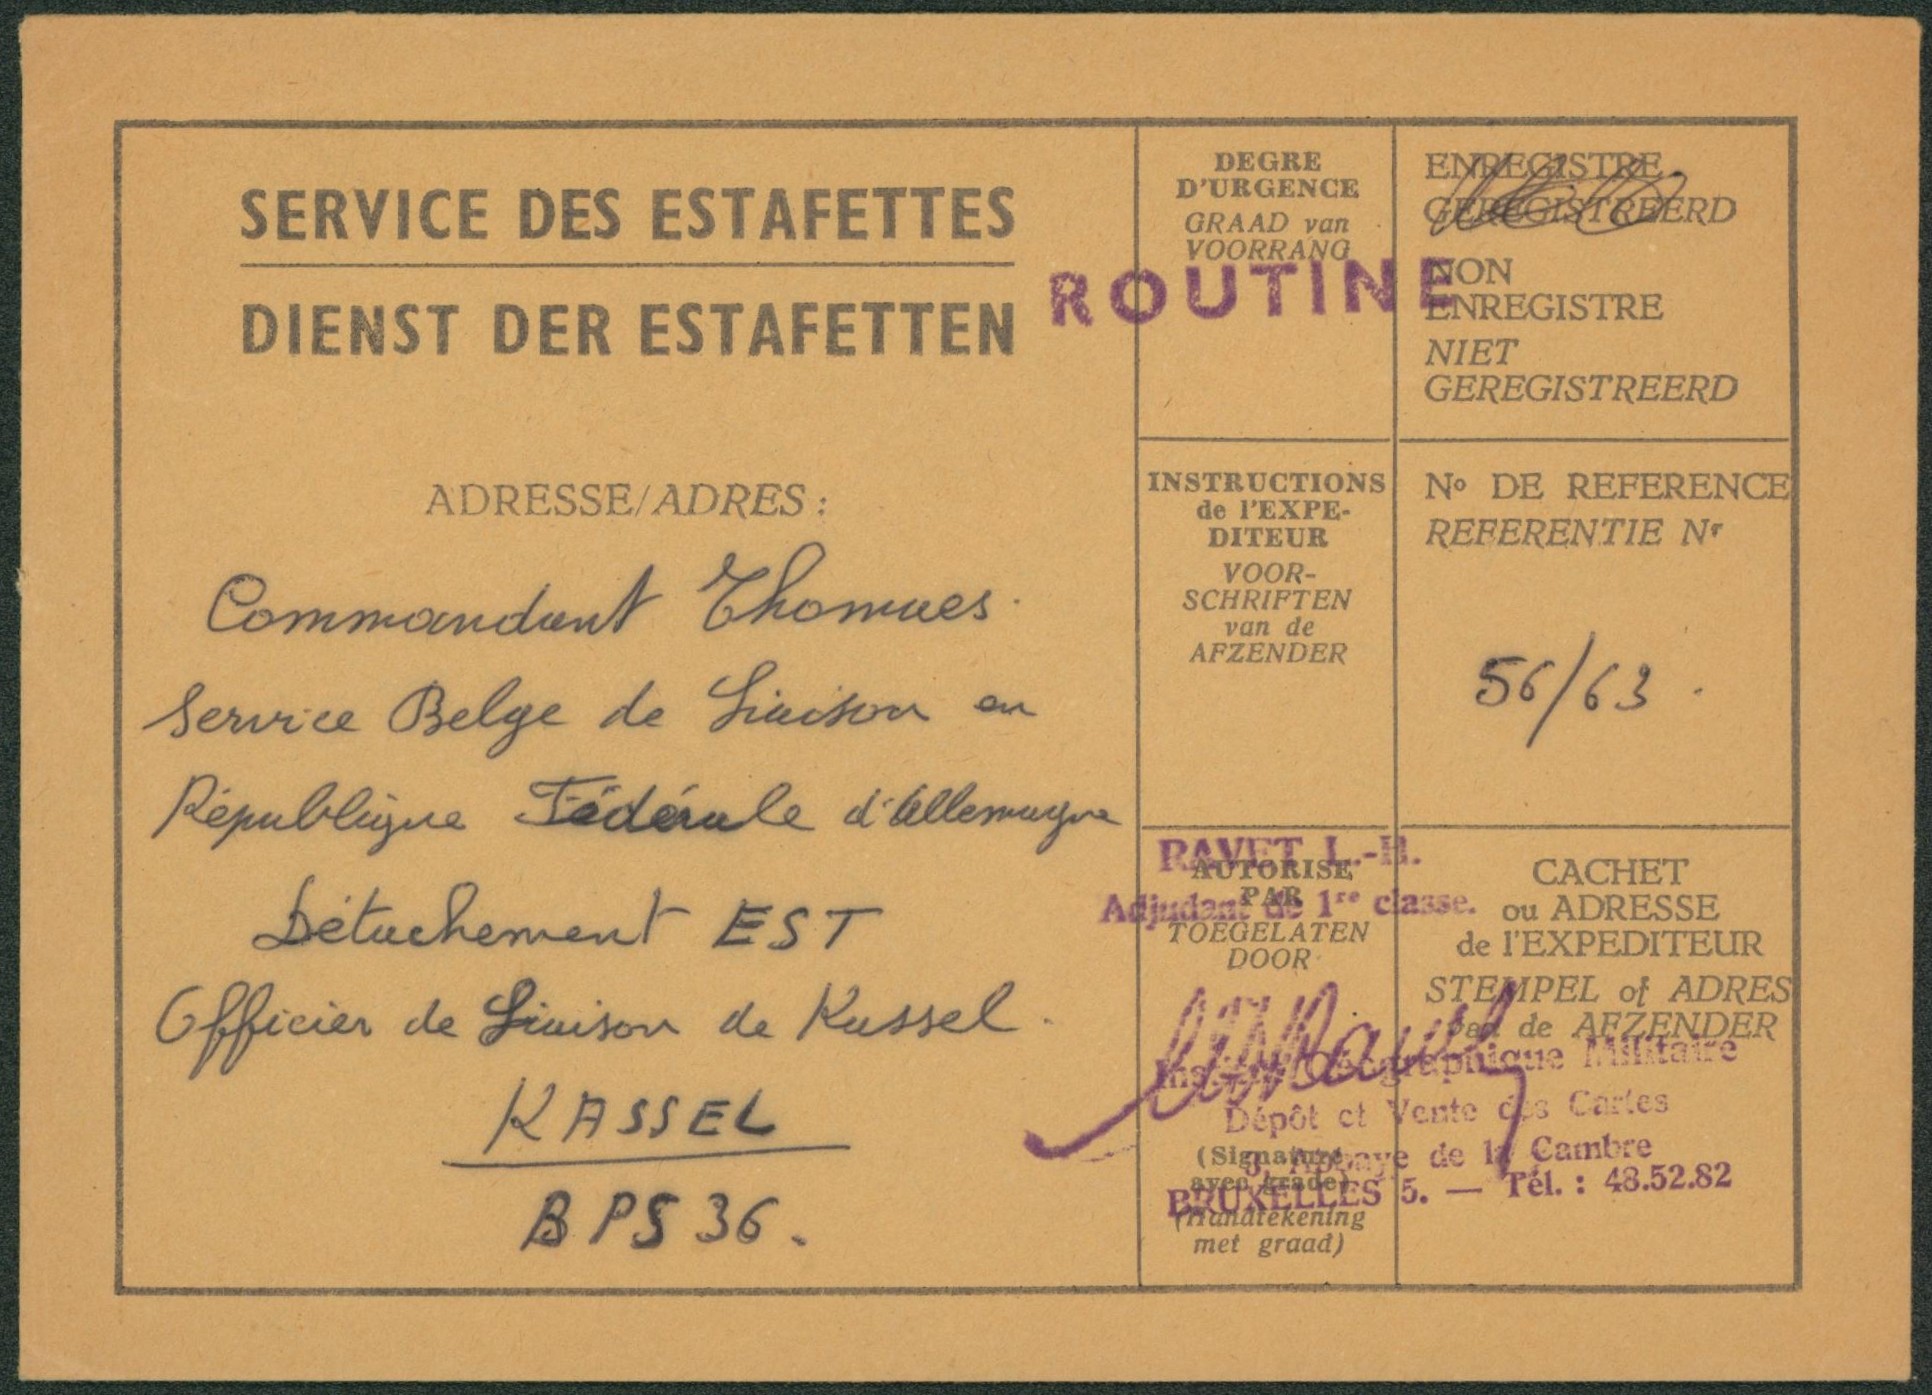 SERVICE DES ESTAFETTES
DIENST DER ESTAFETTEN
ADRESSE/ADRES :
Commandant Thomaes.
Service Belge de Liaison en
République Fédérale d'Allemagne
Détachement EST
Officier de Liaison de Kassel.
KASSEL
BPS 36.
DEGRE
D'URGENCE
GRAAD van
VOORRANG
ROUTINE
ENREGISTRE
GEREGISTREERD
NON
ENREGISTRE
NIET
GEREGISTREERD
INSTRUCTIONS
de l'EXPE-
DITEUR
VOOR-
SCHRIFTEN
van de
AFZENDER
No DE REFERENCE
REFERENTIE Nr
56/63.
RAVET L.-H.
Adjudant de 1re classe.
AUTORISE
PAR
TOEGELATEN
DOOR
(Signature
avec grade)
(Handtekening
met graad)
CACHET
ou ADRESSE
de l'EXPEDITEUR
STEMPEL of ADRES
van de AFZENDER
Institut Géographique Militaire
Dépôt et Vente des Cartes
Abbaye de la Cambre
BRUXELLES 5. — Tél. : 48.52.82